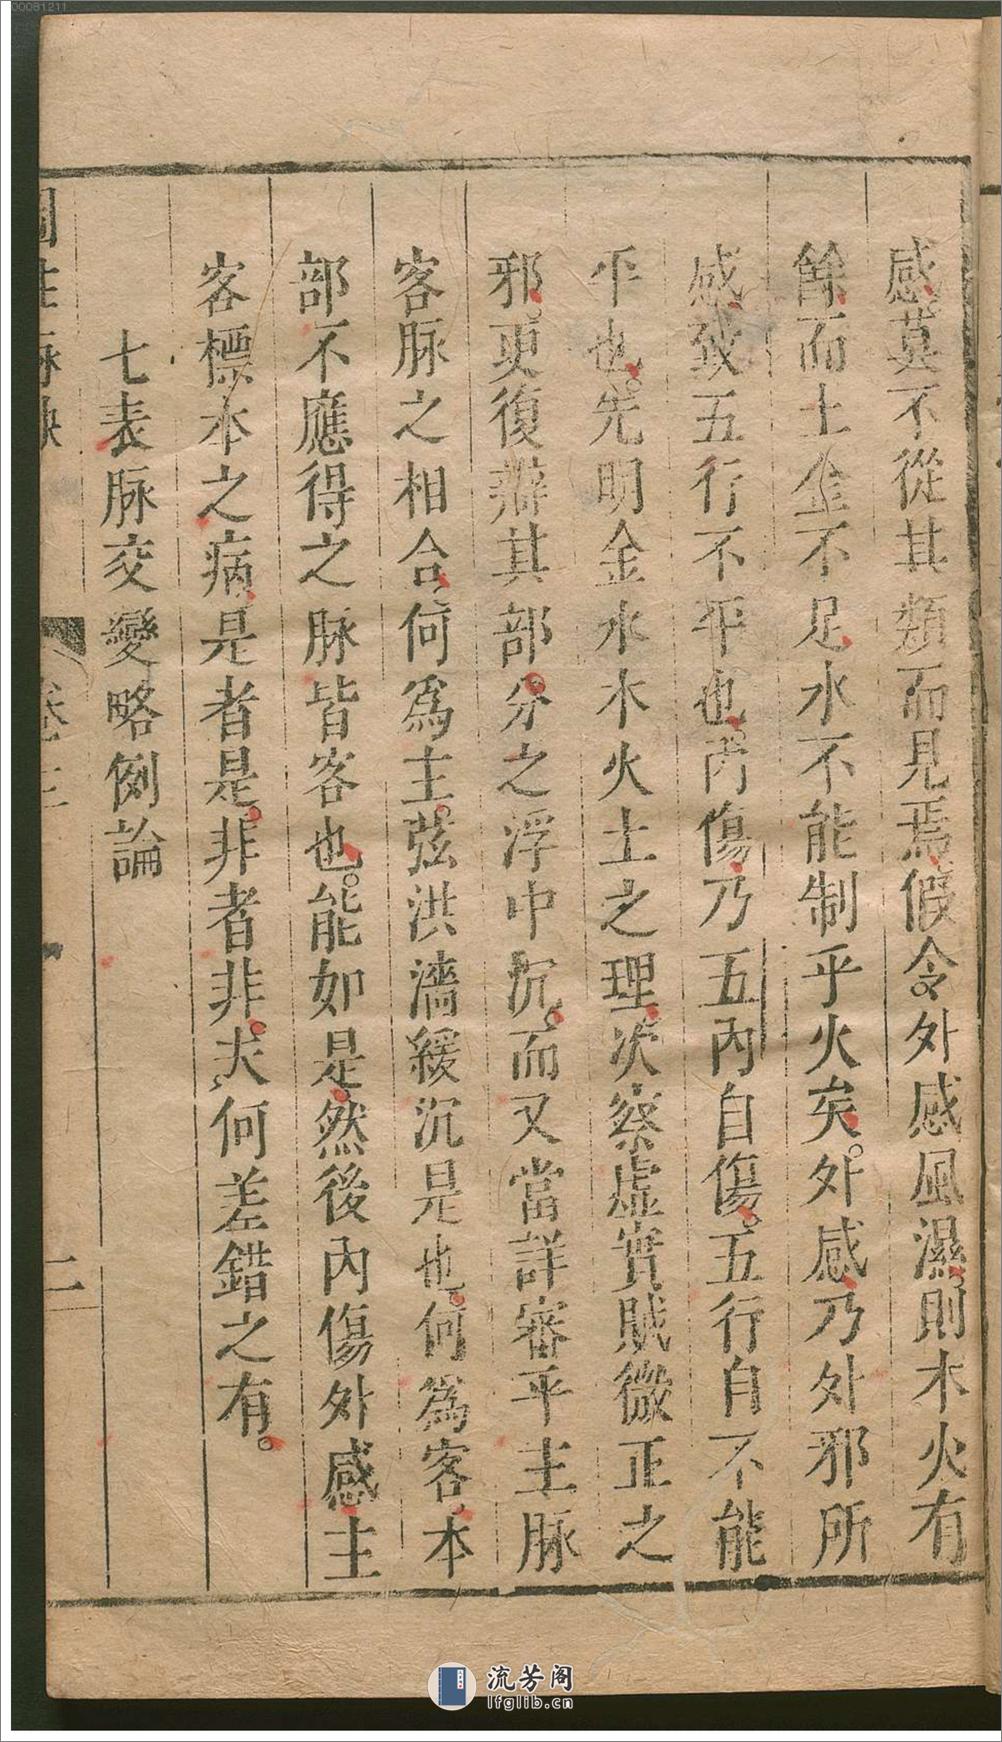 感莫不從其類而見焉假令外感風濕則木火有
餘而土金不足水不能制乎火矣外感乃外邪所
感致五行不平也內傷乃五內自傷五行自不能
平也先明金水木火土之理次察虛實賊微正之
邪更復辯其部分之浮中沉而又當詳審平主脈
客脈之相合何為主弦洪濇緩沉是也何為客本
部不應得之脈皆客也能如是然後內傷外感主
客標本之病是者是非者非夫何差錯之有
七表脈交變略例論
圖註脈訣
卷二
二
00081211
流芳阁
lfglib.cn